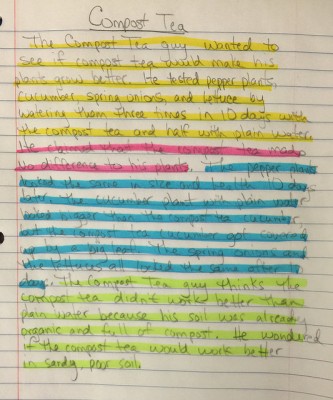 Compost Tea
The Compost Tea guy wanted to
see if compost tea would make his
plants grow better. He tested pepper plants,
cucumber, spring onions, and lettuce by
watering them three times in 10 days with
the compost tea and half with plain water.
He claimed that the compost tea made
no difference to his plants. The pepper plants
looked the same in size and health 10 days
later. The cucumber plant with plain water
looked bigger than the compost tea cucumber,
but the compost tea cucumber got covered
up by a big leaf. The spring onions and
the lettuces all looked the same after 10
days. The compost tea guy thinks the
compost tea didn't work better than
plain water because his soil was already
organic and full of compost. He wondered
if the compost tea would work better
in sandy, poor soil.